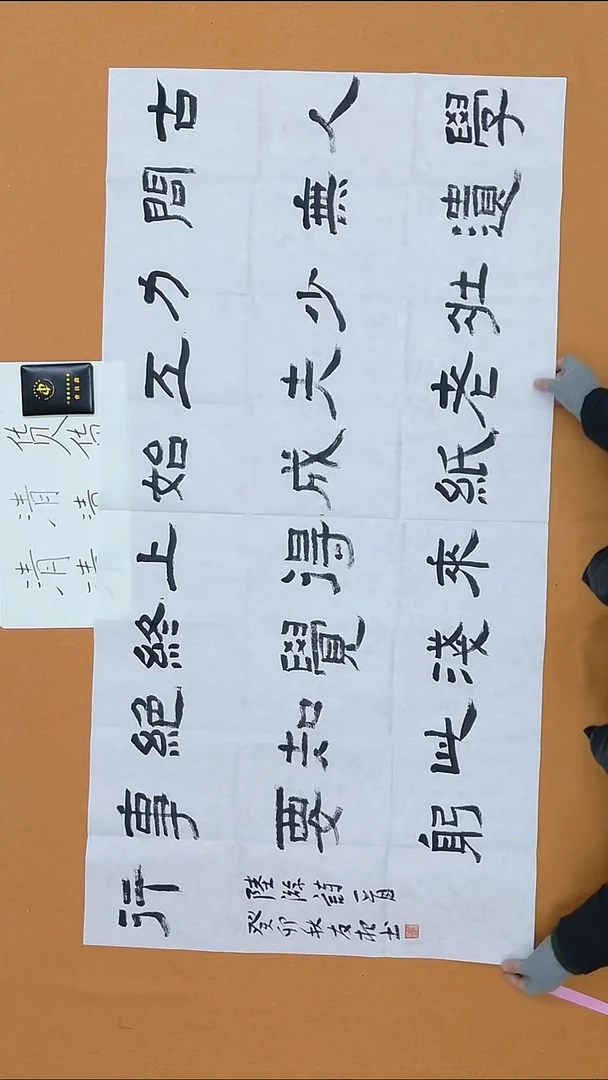 古人學
問無遺
力少壯
工夫老
始成紙
上得來
終覺淺
絕知此
事要躬
行
陸游詩一首
癸卯秋友
货
清
清